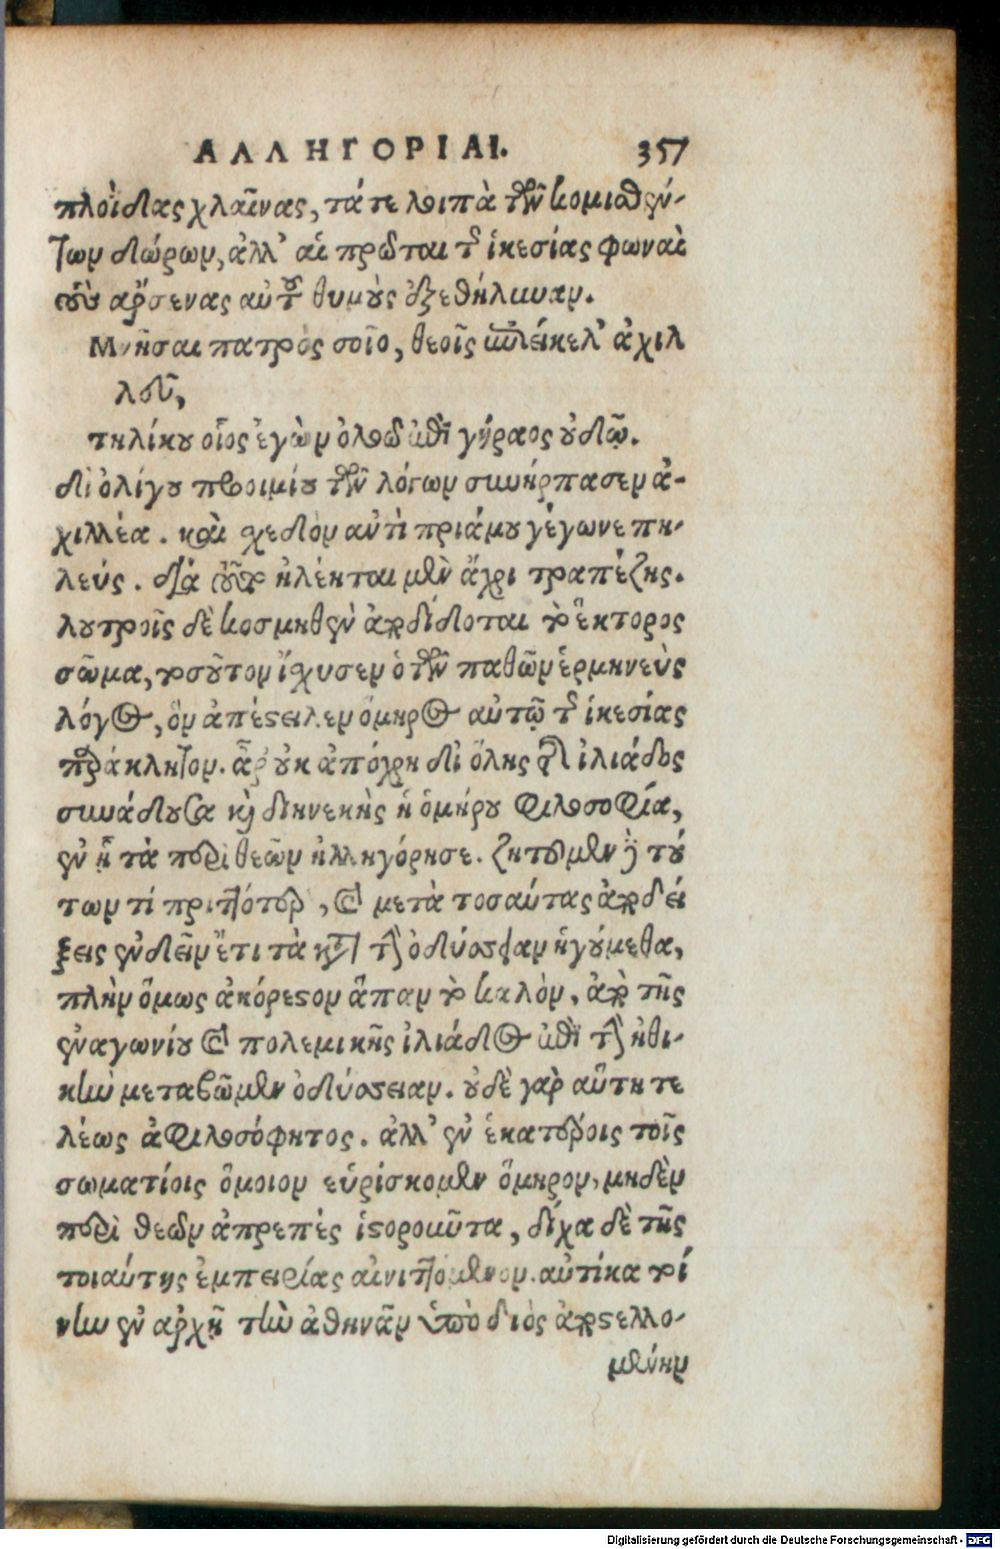 ΑΛΛΗΓΟΡΙΑΙ. 357
πλοΐδας χλαῖνας, τά τε λοιπὰ τῶν κομισθέν-
των δώρων, ἀλλ' αἱ πρῶται τῆς ἱκεσίας φωναὶ
τοὺς ἄρσενας αὐτοῦ θυμοὺς ἐξεθήλυναν.
Μνῆσαι πατρὸς σοῖο, θεοῖς ἐπιείκελ' ἀχιλ
λεῦ,
τηλίκου οἷος ἐγὼν ὀλοῷ ἐπὶ γήραος οὐδῷ.
δι ὀλίγου προοιμίου τῶν λόγων συνήρπασεν ἀ-
χιλλέα. καὶ σχεδὸν αὐτὶ πριάμου γέγωνε πη-
λεύς. διὰ τοῦτο ἠλέηται μὲν ἄχρι τραπέζης.
λουτροῖς δὲ κοσμηθὲν ἀποδίδοται τὸ ἕκτορος
σῶμα, τοσοῦτον ἴσχυσεν ὁ τῶν παθῶν ἑρμηνεὺς
λόγος, ὃν ἀπέστειλεν ὅμηρος αὐτῷ τῆς ἱκεσίας
παράκλητον. ἆρ' οὐκ ἀπόχρη δι ὅλης τῆς ἰλιάδος
συνάδουσα καὶ διηνεκὴς ἡ ὁμήρου φιλοσοφία,
ἐν ᾗ τὰ περὶ θεῶν ἠλληγόρησε. ζητοῦμεν δὲ τού
των τί περιττότερον, καὶ μετὰ τοσαύτας ἀποδεί
ξεις ἐνδεῖν ἔτι τὰ κατὰ τὴν ὀδύσσειαν ἡγούμεθα,
πλὴν ὅμως ἀκόρεστον ἅπαν τὸ καλὸν, ἀπὸ τῆς
ἐναγωνίου καὶ πολεμικῆς ἰλιάδος ἐπὶ τὴν ἠθι-
κὴν μεταβῶμεν ὀδύσσειαν. οὐδὲ γὰρ αὕτη τε
λέως ἀφιλοσόφητος. ἀλλ' ἐν ἑκατέροις τοῖς
σωματίοις ὅμοιον εὑρίσκομεν ὅμηρον, μηδὲν
περὶ θεῶν ἀπρεπὲς ἱστοροῦντα, δίχα δὲ τῆς
τοιαύτης ἐμπειρίας αἰνιττόμενον. αὐτίκα τοί
νυν ἐν ἀρχῇ τὴν ἀθηνᾶν ὑπὸ διὸς ἀποστελλο-
μένην
Digitalisierung gefördert durch die Deutsche Forschungsgemeinschaft - DFG